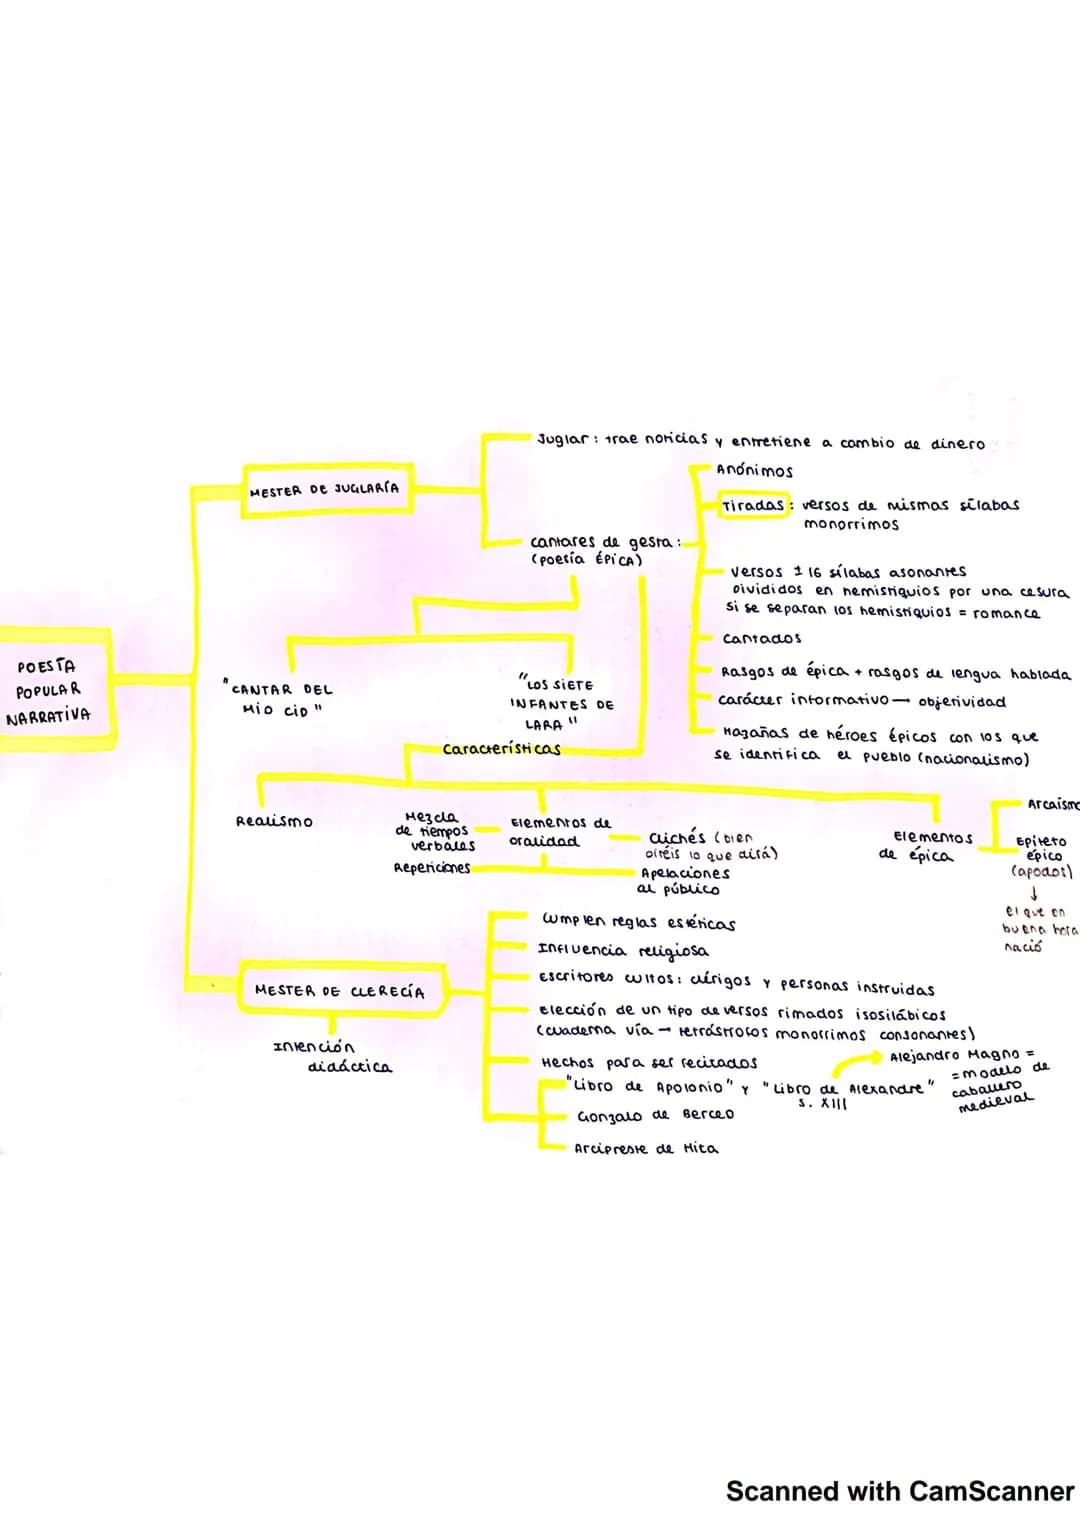 Juglar: trae noticias y entretiene a cambio de dinero
MESTER DE JUGLARÍA
Anónimos
Tiradas: versos de mismas sílabas
monorrimos
cantares de gesta:
(poesía ÉPICA)
versos ± 16 sílabas asonantes
Divididos en hemistiquios por una cesura
Si se separan los hemistiquios = romance
Cantados
Rasgos de épica + rasgos de lengua hablada
carácter informativo — objetividad
Hazañas de héroes épicos con los que
se identifica el pueblo (nacionalismo)
POESÍA
POPULAR
NARRATIVA
"CANTAR DEL
MIO CID"
"LOS SIETE
INFANTES DE
LARA"
Características
Realismo
Mezcla
de tiempos
verbales
Repeticiones
Elementos de
oralidad
Clichés (bien
oiréis lo que dirá)
Apelaciones
al público
Elementos
de épica
Arcaísmo
Epíteto
épico
(apodos)
↓
el que en
buena hora
nació
Cumplen reglas estéticas
Influencia religiosa
Escritores cultos: clérigos y personas instruidas
MESTER DE CLERECÍA
Elección de un tipo de versos rimados isosilábicos
(cuaderna vía → tetrástrofos monorrimos consonantes)
Intención
didáctica
Hechos para ser recitados
Alejandro Magno =
= modelo de
caballero
medieval
"Libro de Apolonio" y "Libro de Alexandre"
S. XIII
Gonzalo de Berceo
Arcipreste de Hita
Scanned with CamScanner